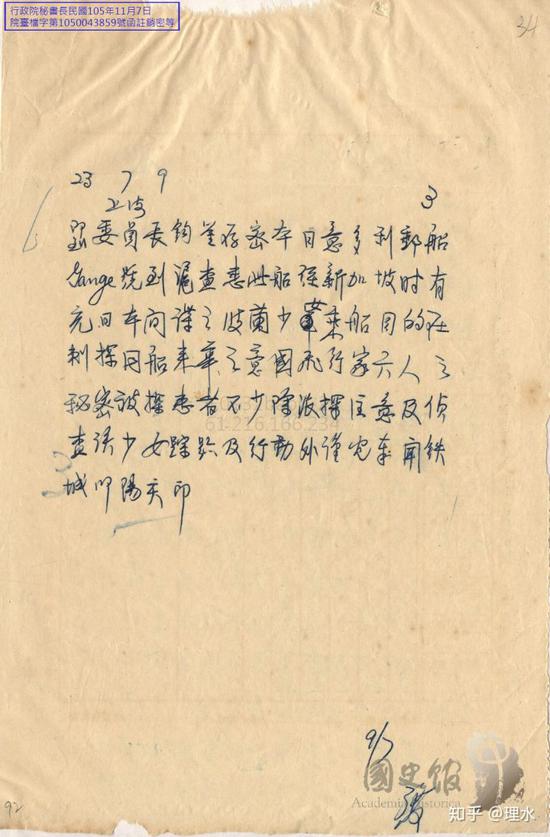 行政院秘書長民國105年11月7日
院臺檔字第1050043859號函註銷密等
34
23 7 9
上海 3
委員長鈞鑒存密本日意多利郵船
Gange號到滬查悉此船經新加坡时有
充日本间谍之波蘭少女乘船目的在
刺探同船来華之意國飛行家六人之
秘密被探悉者不少除派探注意及偵
61.216.166.234
查该少女踪跡及行動外谨電奉聞鉄
城叩陽亥印
9/7
國史館
Academia Historica
92
知乎 @理水